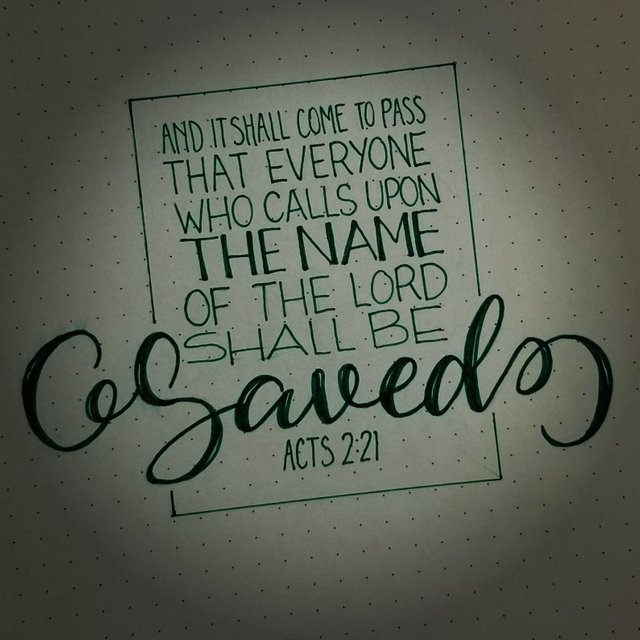 AND IT SHALL COME TO PASS
THAT EVERYONE
WHO CALLS UPON
THE NAME
OF THE LORD
SHALL BE
Saved
ACTS 2:21